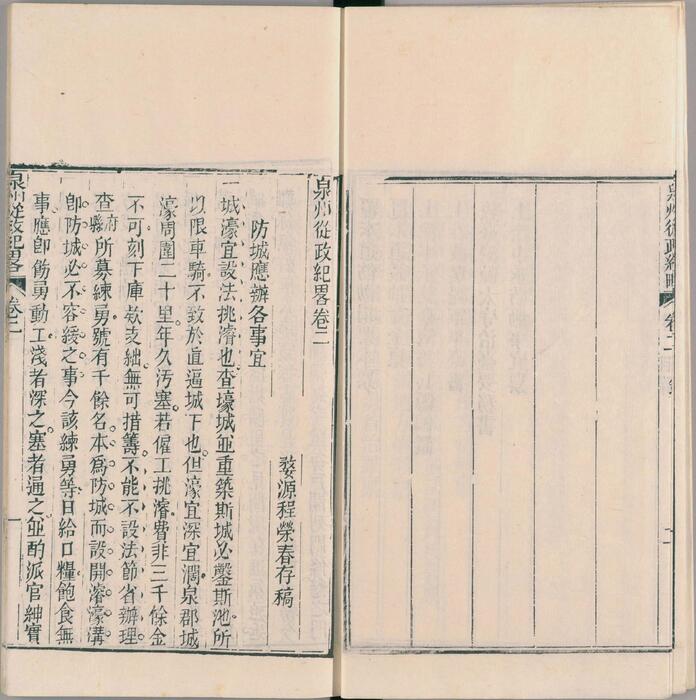 泉州從政紀畧
卷二
泉州從政紀畧卷二
婺源程榮春存稿
防城應辦各事宜
一城濠宜設法挑濬也查壕城並重築斯城必鑿斯池所
以限車騎不致於直逼城下也但濠宜深宜濶泉郡城
濠周圍二十里年久汚塞若僱工挑濬費非三千餘金
不可刻下庫欵支絀無可措籌不能不設法節省辦理
查府縣所募練勇號有千餘名本爲防城而設開濬濠溝
卽防城必不容緩之事今該練勇等日給口糧飽食無
事應卽飭勇動工淺者深之塞者通之並酌派官紳實
泉州從政紀畧
卷二
一